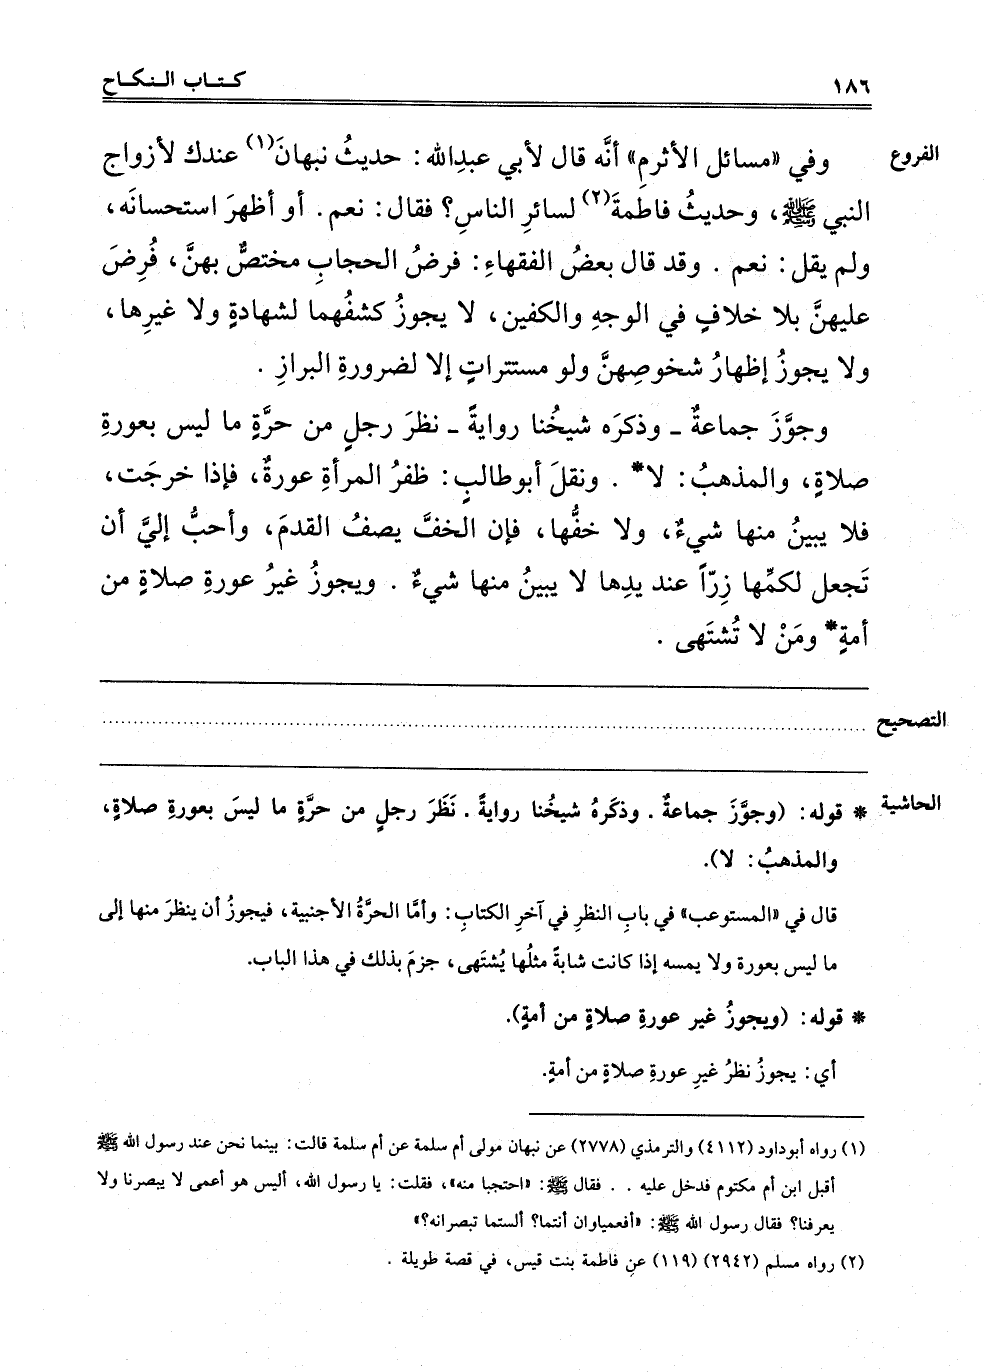 ١٨٦ كتاب النكاح
الفروع وفي «مسائل الأثرمِ» أنَّه قال لأبي عبدِالله: حديثُ نبهانَ(١) عندك لأزواج
النبي ﷺ، وحديثُ فاطمةَ(٢) لسائرِ الناسِ؟ فقال: نعم. أو أظهرَ استحسانَه،
ولم يقل: نعم. وقد قال بعضُ الفقهاءِ: فرضُ الحجابِ مختصٌّ بهنَّ، فُرِضَ
عليهنَّ بلا خلافٍ في الوجهِ والكفين، لا يجوزُ كشفُهما لشهادةٍ ولا غيرِها،
ولا يجوزُ إظهارُ شخوصِهنَّ ولو مستتراتٍ إلا لضرورةِ البرازِ.
وجوَّزَ جماعةٌ ـ وذكرَه شيخُنا روايةً ـ نظرَ رجلٍ من حرَّةٍ ما ليس بعورةِ
صلاةٍ، والمذهبُ: لا*. ونقلَ أبوطالبٍ: ظفرُ المرأةِ عورةٌ، فإذا خرجَت،
فلا يبينُ منها شيءٌ، ولا خفُّها، فإن الخفَّ يصفُ القدمَ، وأحبُّ إليَّ أن
تَجعل لكمِّها زِرّاً عند يدِها لا يبينُ منها شيءٌ. ويجوزُ غيرُ عورةِ صلاةٍ من
أمةٍ* ومَنْ لا تُشتَهى.
التصحيح
الحاشية * قوله: (وجوَّزَ جماعةٌ. وذكَرهُ شيخُنا روايةً. نَظَرَ رجلٍ من حرَّةٍ ما ليسَ بعورةِ صلاةٍ،
والمذهبُ: لا).
قال في «المستوعب» في بابِ النظرِ في آخرِ الكتابِ: وأمَّا الحرَّةُ الأجنبية، فيجوزُ أن ينظرَ منها إلى
ما ليس بعورة ولا يمسه إذا كانت شابةً مثلُها يُشتَهى، جزمَ بذلك في هذا الباب.
* قوله: (ويجوزُ غير عورةِ صلاةٍ من أمةٍ).
أي: يجوزُ نظرُ غيرِ عورةِ صلاةٍ من أمةٍ.
(١) رواه أبوداود (٤١١٢) والترمذي (٢٧٧٨) عن نبهان مولى أم سلمة عن أم سلمة قالت: بينما نحن عند رسول الله ﷺ
أقبل ابن أم مكتوم فدخل عليه . . فقال ﷺ: «احتجبا منه»، فقلت: يا رسول الله، أليس هو أعمى لا يبصرنا ولا
يعرفنا؟ فقال رسول الله ﷺ: «أفعمياوان أنتما؟ ألستما تبصرانه؟»
(٢) رواه مسلم (٢٩٤٢) (١١٩) عن فاطمة بنت قيس، في قصة طويلة.